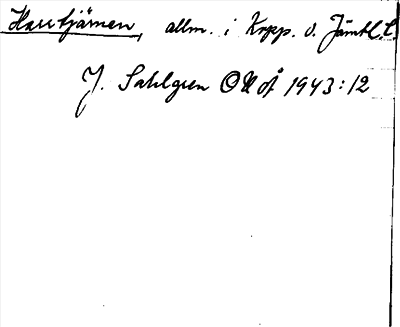 Harrtjärnen, allm. i Kopp. o. Jämtl. l.
J. Sahlgren ONoÅ 1943:12